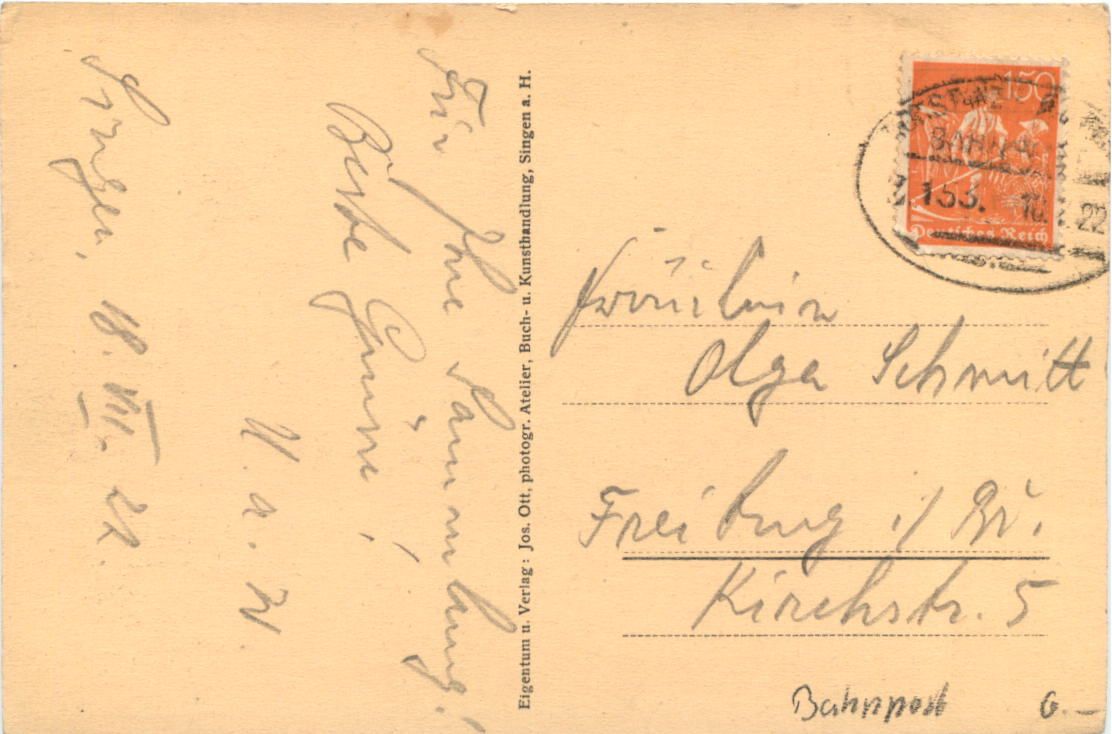 Für Ihre Sammlung!
Beste Grüsse,
Singen, 18. VII. 22
Eigentum u. Verlag: Jos. Ott, photogr. Atelier, Buch- u. Kunsthandlung, Singen a. H.
150
Deutsches Reich
153.
22
Fräulein
Olga Schmitt
Freiburg i/Br.
Kirchstr. 5
Bahnpost 6.—